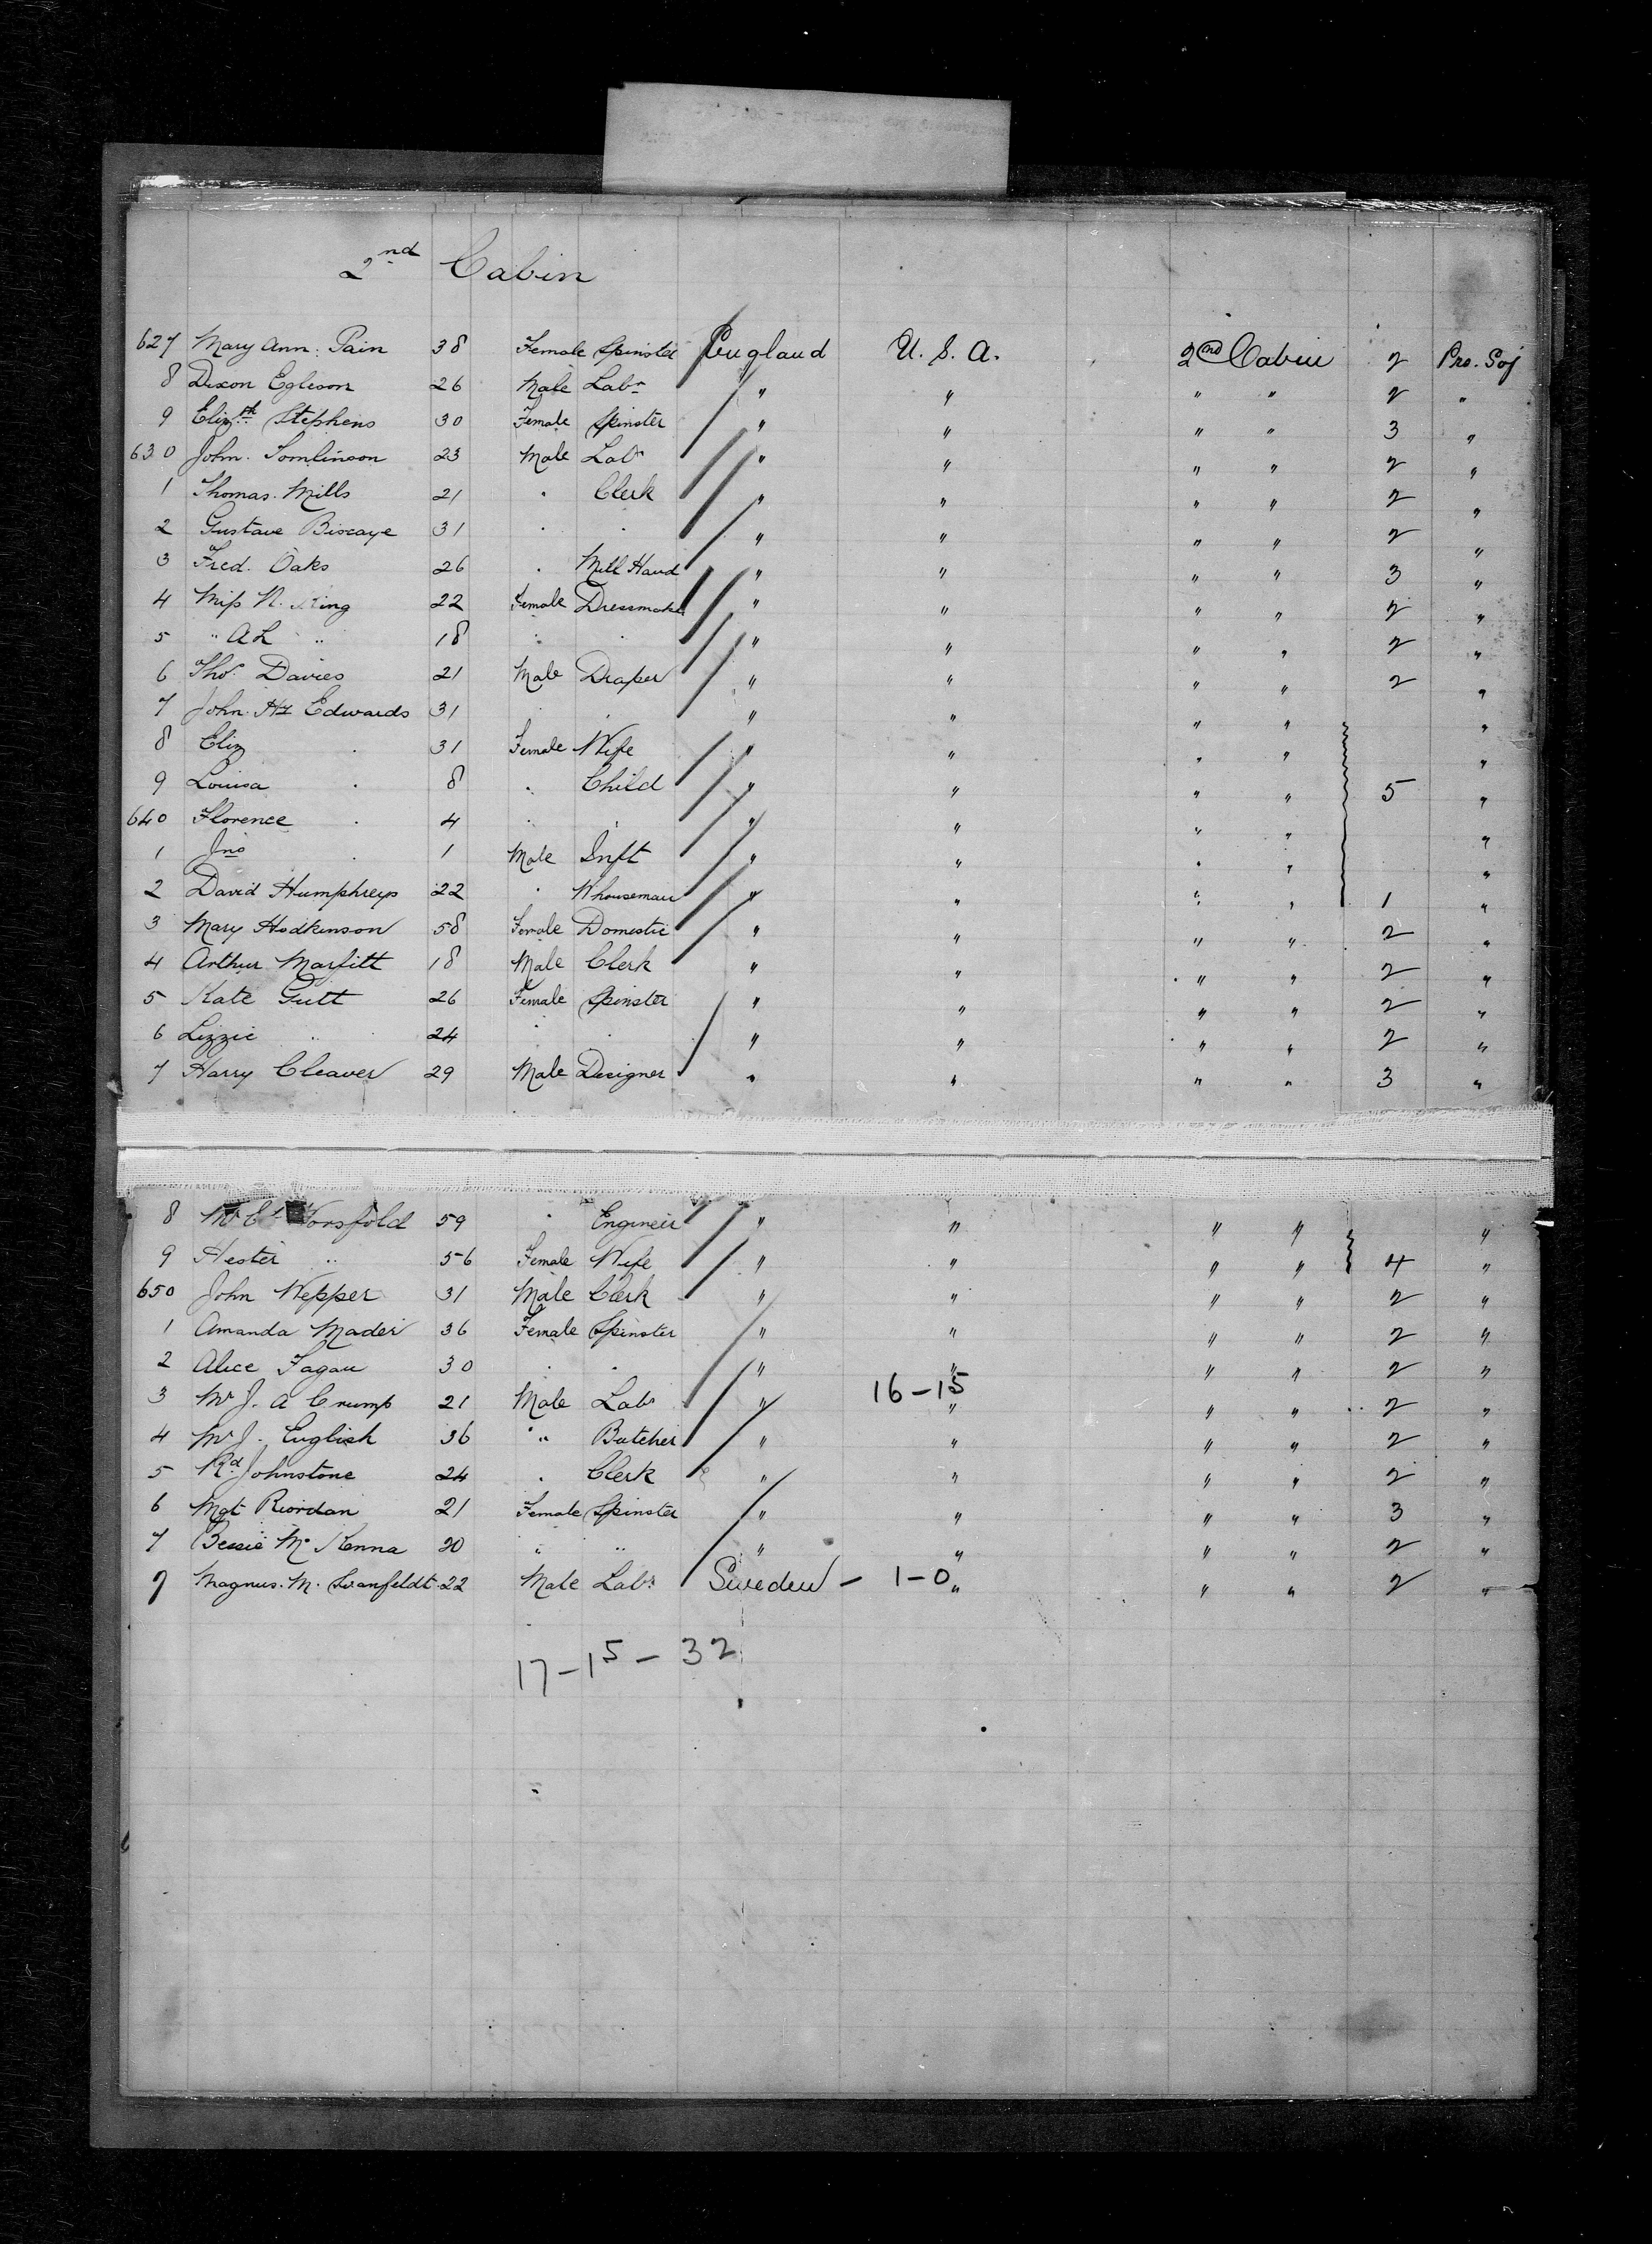 2nd Cabin
627 Mary Ann Pain 38 Female Spinster England U. S. A. 2nd Cabin 2 Pro. Soj
8 Dixon Egleson 26 Male Labr " " " " 2 "
9 Elizth Stephens 30 Female Spinster " " " " 3 "
630 John Tomlinson 23 Male Labr " " " " 2 "
1 Thomas Mills 21 " Clerk " " " " 2 "
2 Gustave Biscaye 31 " " " " " " 2 "
3 Fred. Oaks 26 " Mill Hand " " " " 3 "
4 Miss N. King 22 Female Dressmaker " " " " 2 "
5 " A L " 18 " " " " " " 2 "
6 Thos. Davies 21 Male Draper " " " " 2 "
7 John Hy Edwards 31 " " " " " " "
8 Eliz " 31 Female Wife " " " " "
9 Louisa " 8 " Child " " " " 5 "
640 Florence " 4 " " " " " " "
1 Jno " 1 Male Inft " " " " "
2 David Humphreys 22 " Whouseman " " " " 1 "
3 Mary Hodkinson 58 Female Domestic " " " " 2 "
4 Arthur Marfitt 18 Male Clerk " " " " 2 "
5 Kate Gutt 26 Female Spinster " " " " 2 "
6 Lizzie " 24 " " " " " " 2 "
7 Harry Cleaver 29 Male Designer " " " " 3 "
8 Mr Worsfold 59 " Engineer " " " " "
9 Hester " 56 Female Wife " " " " 4 "
650 John Wepper 31 Male Clerk " " " " 2 "
1 Amanda Mader 36 Female Spinster " " " " 2 "
2 Alice Fagan 30 " " " " " " 2 "
3 Mr J. A Crump 21 Male Labr " 16-15 " " " 2 "
4 Mr J. English 36 " Butcher " " " " 2 "
5 Rd Johnstone 24 " Clerk " " " " 2 "
6 Mgt Riordan 21 Female Spinster " " " " 3 "
7 Bessie Mc Kenna 20 " " " " " " 2 "
Magnus. M. Svanfeldt 22 Male Labr Sweden - 1-0 " " " 2 "
17-15-32